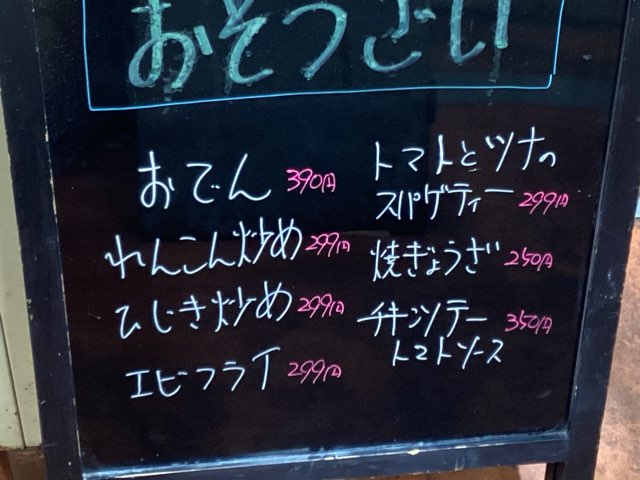 おそうざい
おでん 390円
れんこん炒め 299円
ひじき炒め 299円
エビフライ 299円
トマトとツナの
スパゲティー 299円
焼ぎょうざ 250円
チキンソテー 350円
トマトソース